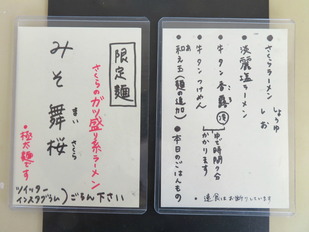 さくらラーメン しょうゆ しお
●淡麗塩ラーメン
●牛タン
●牛タンつけめん
ゆで時間7分
かかります
●和え玉(麺の追加)
●本日のごはんもの
限定麺
さくらのガツ盛り系ラーメン
みそ舞桜
まい さくら
●極太麺です
ツイッター
インスタグラム
ごらん下さい